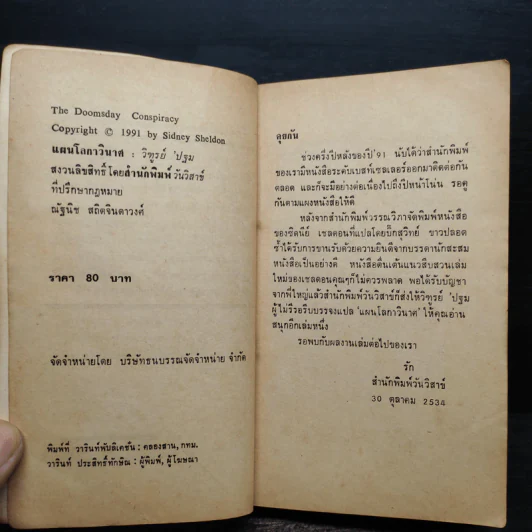 The Doomsday Conspiracy
Copyright © 1991 by Sidney Sheldon
แผนโลกาวินาศ : วิฑูรย์ 'ปฐม
สงวนลิขสิทธิ์โดยสำนักพิมพ์วันวิสาข์
ที่ปรึกษากฎหมาย
ณัฐนิช สถิตจินดาวงศ์
ราคา 80 บาท
จัดจำหน่ายโดย บริษัทธนบรรณจัดจำหน่าย จำกัด
พิมพ์ที่ วารินท์พับลิเคชั่น : คลองสาน, กทม.
วารินท์ ประสิทธิ์ทักษิณ : ผู้พิมพ์, ผู้โฆษณา
คุยกัน
ช่วงครึ่งปีหลังของปี'91 นับได้ว่าสำนักพิมพ์
ของเรามีหนังสือระดับเบสท์เซลเลอร์ออกมาติดต่อกัน
ตลอด และก็จะมีอย่างต่อเนื่องไปถึงปีหน้าโน่น รอดู
กันตามแผงหนังสือให้ดี
หลังจากสำนักพิมพ์วรรณวิภาจัดพิมพ์หนังสือ
ของซิดนีย์ เชลดอนที่แปลโดยบิ๊กสุวิทย์ ขาวปลอด
ซ้ำได้รับการขานรับด้วยความยินดีจากบรรดานักสะสม
หนังสือเป็นอย่างดี หนังสือตื่นเต้นแนวสืบสวนเล่ม
ใหม่ของเชลดอนคุณๆก็ไม่ควรพลาด พอได้รับบัญชา
จากพี่ใหญ่แล้วสำนักพิมพ์วันวิสาข์ก็ส่งให้วิฑูรย์ 'ปฐม
ผู้ไม่รีรอรีบบรรจงแปล 'แผนโลกาวินาศ' ให้คุณอ่าน
สนุกอีกเล่มหนึ่ง
รอพบกับผลงานเล่มต่อไปของเรา
รัก
สำนักพิมพ์วันวิสาข์
30 ตุลาคม 2534